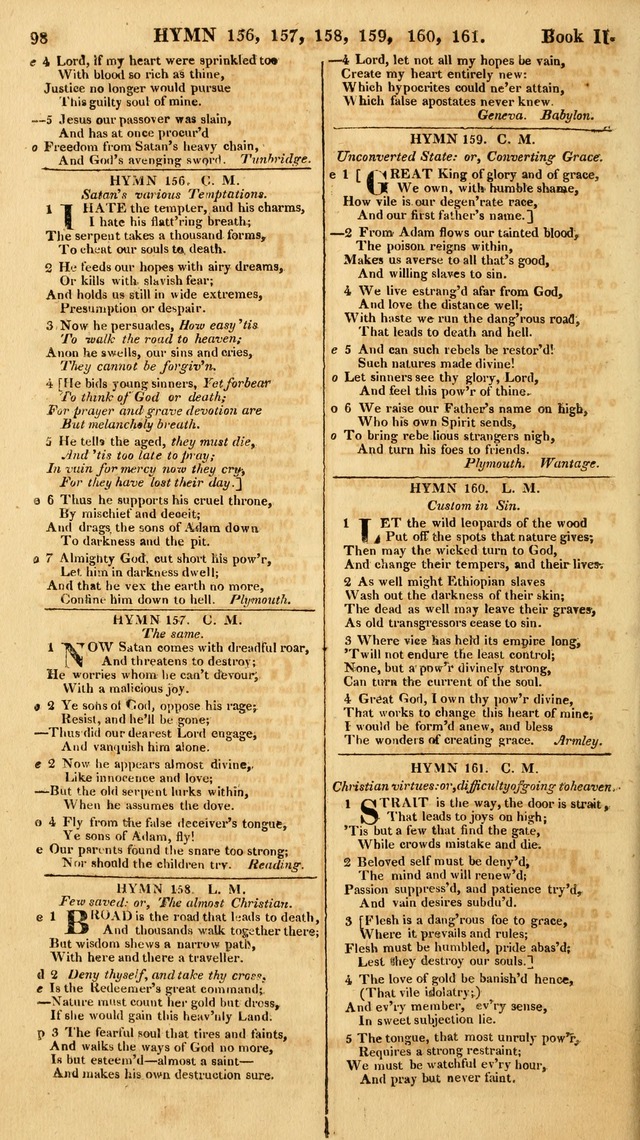 98 HYMN 156, 157, 158, 159, 160, 161. Book II.
e 4 Lord, if my heart were sprinkled too
With blood so rich as thine,
Justice no longer would pursue
This guilty soul of mine.
—5 Jesus our passover was slain,
And has at once procur'd
o Freedom from Satan's heavy chain,
And God's avenging sword. Tunbridge.
HYMN 156. C. M.
Satan's various Temptations.
1 I HATE the tempter, and his charms,
I hate his flatt'ring breath;
The serpent takes a thousand forms,
To cheat our souls to death.
2 He feeds our hopes with airy dreams,
Or kills with slavish fear;
And holds us still in wide extremes,
Presumption or despair.
3 Now he persuades, How easy 'tis
To walk the road to heaven;
Anon he swells, our sins and cries,
They cannot be forgiv'n.
4 [He bids young sinners, Yet forbear
To think of God or death;
For prayer and grave devotion are
But melancholy breath.
5 He tells the aged, they must die,
And 'tis too late to pray;
In vain for mercy now they cry,
For they have lost their day.]
o 6 Thus he supports his cruel throne,
By mischief and deceit;
And drags the sons of Adam down
To darkness and the pit.
o 7 Almighty God, cut short his pow'r,
Let him in darkness dwell;
And that he vex the earth no more,
Confine him down to hell. Plymouth.
HYMN 157. C. M.
The same.
1 NOW Satan comes with dreadful roar,
And threatens to destroy;
He worries whom he can't devour,
With a malicious joy.
o 2 Ye sons of God, oppose his rage;
Resist, and he'll be gone;
—Thus did our dearest Lord engage,
And vanquish him alone.
e 2 Now he appears almost divine,
Like innocence and love;
—But the old serpent lurks within,
When he assumes the dove.
o 4 Fly from the false deceiver's tongue,
Ye sons of Adam, fly!
e Our parents found the snare too strong;
Nor should the children try. Reading.
HYMN 158. L. M.
Few saved: or, The almost Christian.
e 1 BROAD is the road that leads to death,
And thousands walk together there;
But wisdom shews a narrow path,
With here and there a traveller.
d 2 Deny thyself, and take thy cross,
e Is the Redeemer's great command;
—Nature must count her gold but dross,
If she would gain this heav'nly Land.
p 3 The fearful soul that tires and faints,
And walks the ways of God no more,
Is but esteem'd—almost a saint—
And makes his own destruction sure.
—4 Lord, let not all my hopes be vain,
Create my heart entirely new:
Which hypocrites could ne'er attain,
Which false apostates never knew.
Geneva. Babylon.
HYMN 159. C. M.
Unconverted State: or, Converting Grace.
e 1 [ GREAT King of glory and of grace,
We own, with humble shame,
How vile is our degen'rate race,
And our first father's name.]
—2 From Adam flows our tainted blood,
The poison reigns within,
Makes us averse to all that's good,
And willing slaves to sin.
4 We live estrang'd afar from God,
And love the distance well;
With haste we run the dang'rous road,
That leads to death and hell.
e 5 And can such rebels be restor'd!
Such natures made divine!
o Let sinners see thy glory, Lord,
And feel this pow'r of thine.
o 6 We raise our Father's name on high,
Who his own Spirit sends,
o To bring rebellious strangers nigh,
And turn his foes to friends.
Plymouth. Wantage.
HYMN 160. L. M.
Custom in Sin.
1 LET the wild leopards of the wood
Put off the spots that nature gives;
Then may the wicked turn to God,
And change their tempers, and their lives.
2 As well might Ethiopian slaves
Wash out the darkness of their skin;
The dead as well may leave their graves,
As old transgressors cease to sin.
3 Where vice has held its empire long,
'Twill not endure the least control;
None, but a pow'r divinely strong,
Can turn the current of the soul.
4 Great God, I own thy pow'r divine,
That works to change this heart of mine;
I would be form'd anew, and bless
The wonders of creating grace. Armley.
HYMN 161. C. M.
Christian virtues: or, difficulty of going to heaven.
1 STRAIT is the way, the door is strait,
That leads to joys on high;
'Tis but a few that find the gate,
While crowds mistake and die.
2 Beloved self must be deny'd,
The mind and will renew'd;
Passion suppress'd, and patience try'd,
And vain desires subdu'd.
3 [Flesh is a dang'rous foe to grace,
Where it prevails and rules;
Flesh must be humbled, pride abas'd;
Lest they destroy our souls.]
4 The love of gold be banish'd hence,
(That vile idolatry;)
And ev'ry member, ev'ry sense,
In sweet subjection lie.
5 The tongue, that most unruly pow'r,
Requires a strong restraint;
We must be watchful ev'ry hour,
And pray but never faint.